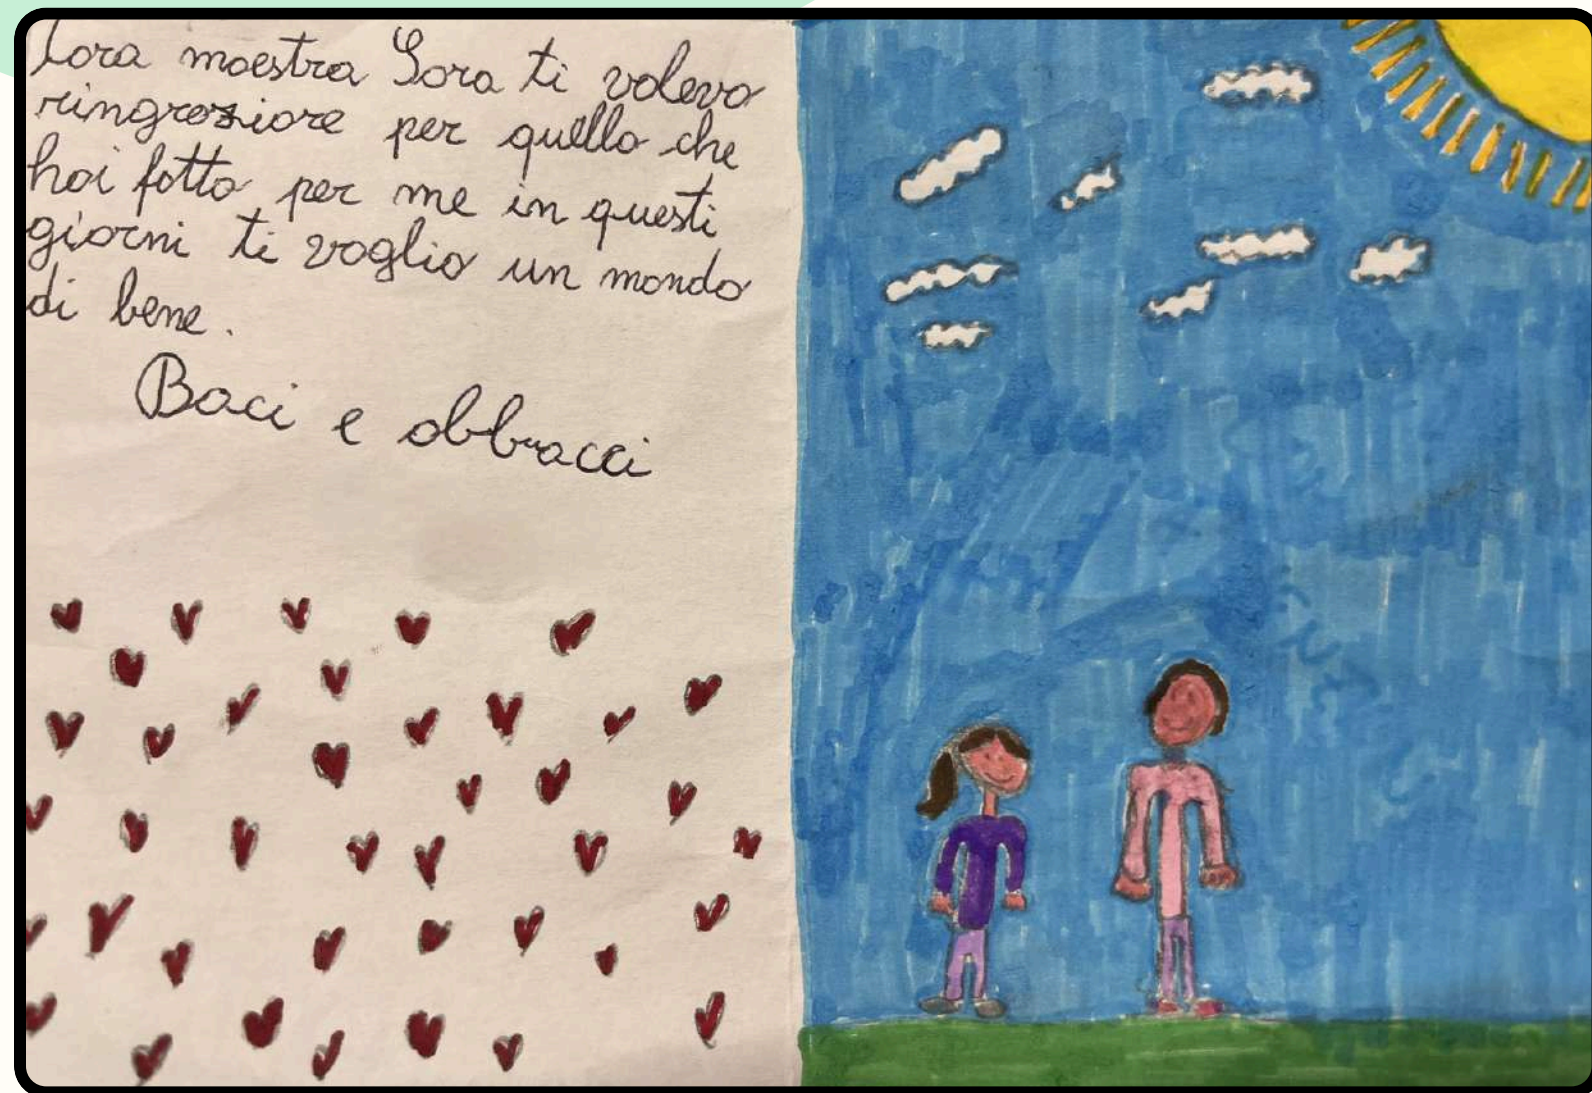 Cara maestra Sara ti volevo
ringraziare per quello che
hai fatto per me in questi
giorni ti voglio un mondo
di bene.
Baci e abbracci